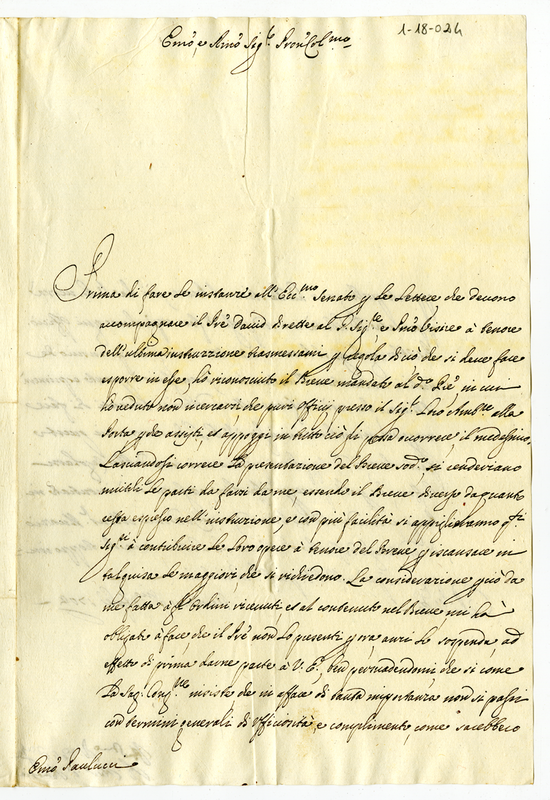 1-18-024
Emo, e Rmo Sigre Pron Colmo
Prima di fare le instanze all'Eccmo Senato p le Lettere che devono
accompagnare il Pre David dirette al G. Sigre e Pmo Visire à tenore
dell'ultima instruzzione trasmessami p regola di ciò che si deve fare
esporre in esse, hò riconosciuto il Breve mandato al do Pre in cui
hò veduto non ricercarsi che puri Officij presso il Sigr Loro Ambre alla
Porta p che assisti, et appoggi in tutto ciò li possa occorrere il medesimo.
Lasciandosi correre la presentazione del Breve sudo si renderiano
inutili le parti da farsi da me, essendo il Breve diverso da quanto
resta espresso nell'instruzione, e con più facilità si appiglieranno qti
Sigri à contribuire le loro opere à tenore del Breve, p iscansare in
tal guisa le maggiori che si richiedono. La considerazione p ciò da
me fatta à gl'ordini ricevuti et al contenuto nel Breve mi hà
obligato à fare che il Pre non lo presenti, p ora anzi lo sospenda ad
effetto di prima darne parte à V. E., ben persuadendomi che si come
la Sag. Congne insiste che in affare di tanta importanza non si passi
con termini generali di Officiosità, e complimento, come sarebbero
Emo Paulucci